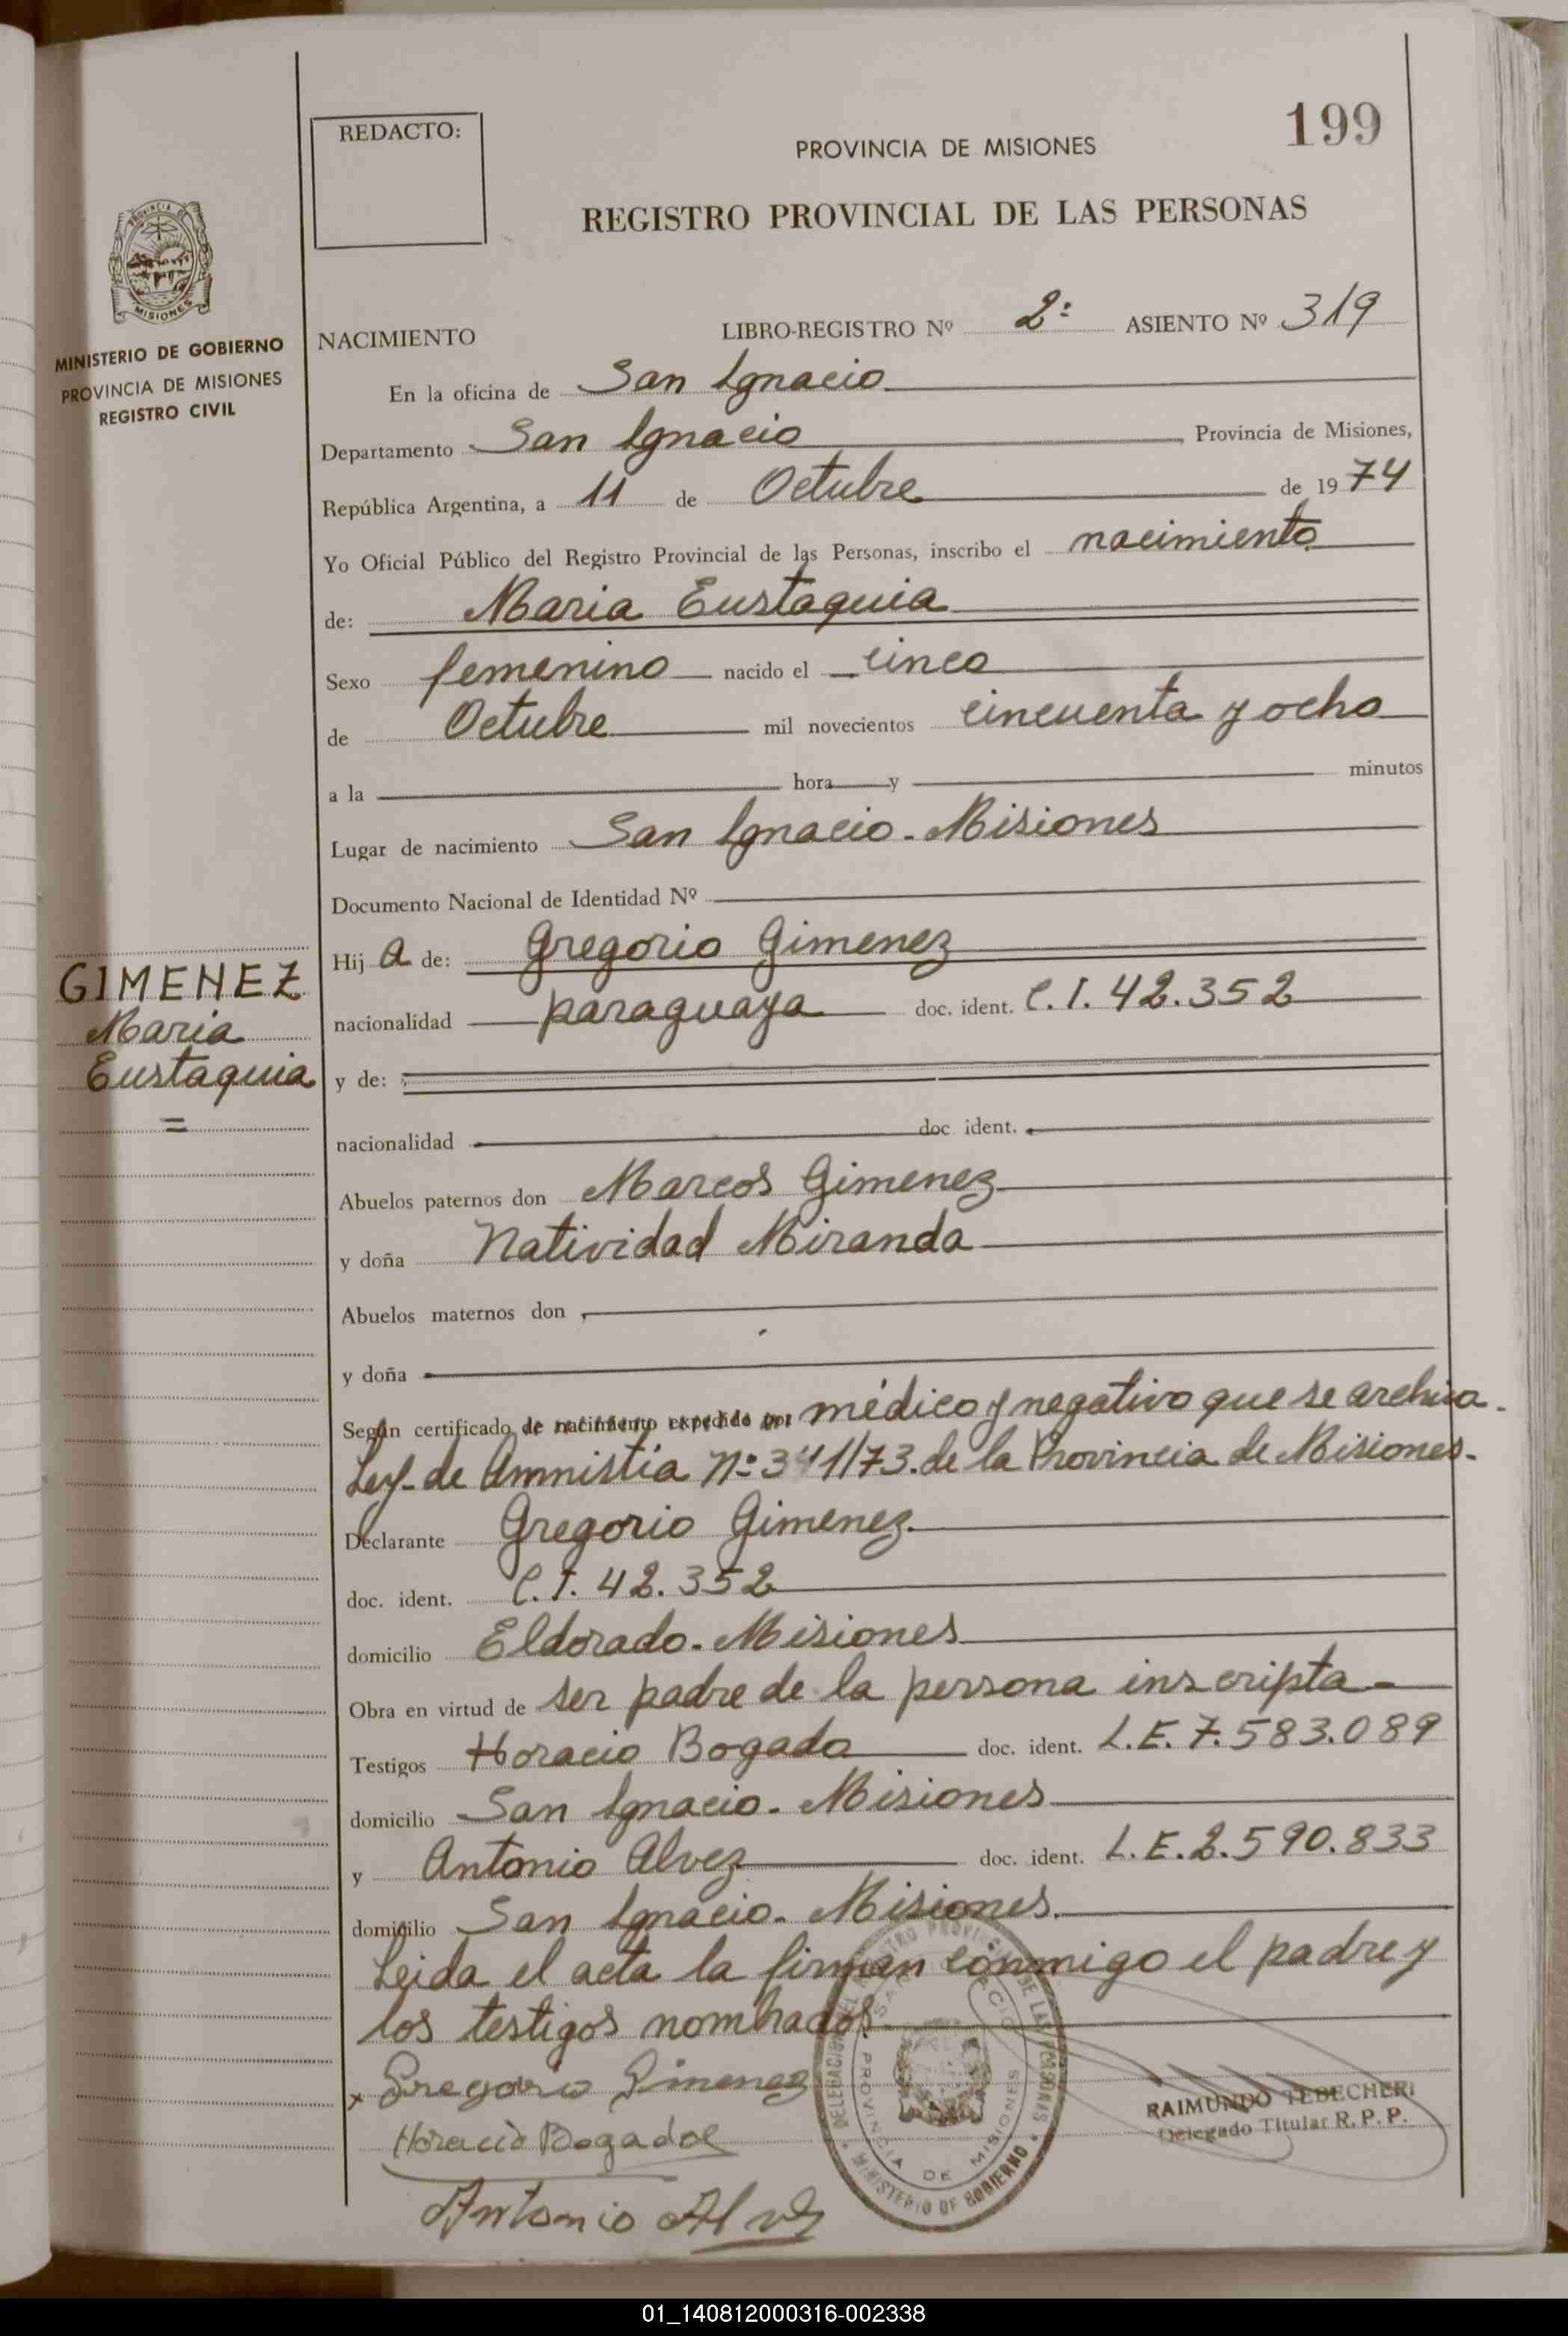 REDACTO:
199
PROVINCIA DE MISIONES
REGISTRO PROVINCIAL DE LAS PERSONAS
PROVINCIA DE
MISIONES
MINISTERIO DE GOBIERNO
PROVINCIA DE MISIONES
REGISTRO CIVIL
NACIMIENTO LIBRO-REGISTRO Nº 2º ASIENTO Nº 319
En la oficina de San Ignacio
Departamento San Ignacio, Provincia de Misiones,
República Argentina, a 11 de Octubre de 1974
Yo Oficial Público del Registro Provincial de las Personas, inscribo el nacimiento
de: Maria Eustaquia
Sexo femenino nacido el cinco
de Octubre mil novecientos cincuenta y ocho
a la hora y minutos
Lugar de nacimiento San Ignacio - Misiones
Documento Nacional de Identidad Nº
Hija de: Gregorio Gimenez
GIMENEZ
Maria
Eustaquia
=
nacionalidad paraguaya doc. ident. C.I. 42.352
y de:
nacionalidad doc ident.
Abuelos paternos don Marcos Gimenez
y doña Natividad Miranda
Abuelos maternos don
y doña
Según certificado de nacimiento expedido por médico y negativo que se archiva.
Ley de Amnistia Nº 341/73. de la Provincia de Misiones.
Declarante Gregorio Gimenez.
doc. ident. C.I. 42.352
domicilio Eldorado. Misiones
Obra en virtud de ser padre de la persona inscripta
Testigos Horacio Bogado doc. ident. L.E. 7.583.089
domicilio San Ignacio. Misiones
y Antonio Alvez doc. ident. L.E. 2.590.833
domicilio San Ignacio. Misiones.
Leida el acta la firman conmigo el padre y
los testigos nombrados.
x Gregorio Gimenez
Horacio Bogado
Antonio Alvez
PROVINCIA DE MISIONES
MINISTERIO DE GOBIERNO
RAIMUNDO TEBECHERI
Delegado Titular R. P. P.
01_140812000316-002338